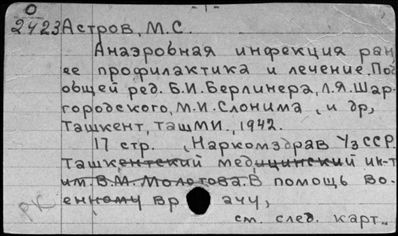 - 1 -
О
2423 Астров, М.С.
Анаэробная инфекция ран,
ее профилактика и лечение. Под
общей ред. Б.И. Берлинера, Л.Я. Шар-
городского, М.И. Слонима, и др,
Ташкент, ТашМИ., 1942.
17 стр. (Наркомздрав УзССР.
Ташкентский медицинский ин-т
им. В.М. Молотова. В помощь во-
енному вр ачу,
см. след. карт..
РК